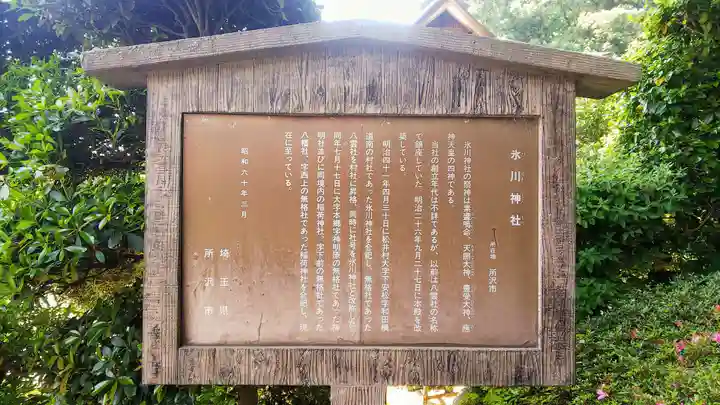 氷川神社
所在地 所沢市
氷川神社の祭神は素盞嗚命、天照大神、豊受大神、産
神天皇の四神である。
当社の創立年代は不詳であるが、以前は八雲社の名称
で鎮座していた。明治二十六年九月二十七日に本殿を改
築している。
明治四十一年四月三十日に松井村大字下安松字和田横
道南の村社であった氷川神社を合祀し、無格社であった
八雲社を村社に昇格、同時に社号を氷川神社と改称した。
同年七月十七日に大字本郷字神明原の無格社であった神
明社並びに同境内の稲荷神社、字下前の無格社であった
八幡社、字西上の無格社であった稲荷神社を合祀し、現
在に至っている。
昭和六十年三月
埼玉県
所沢市